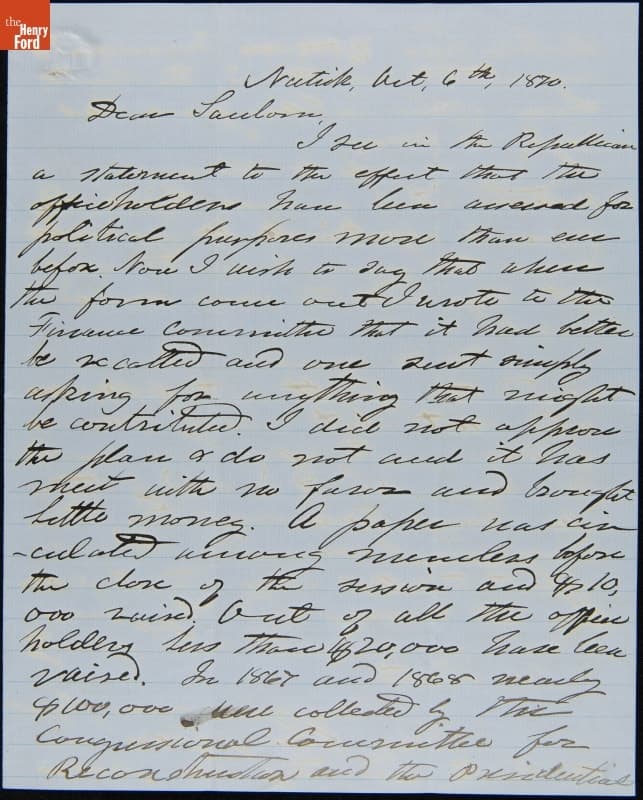 the
Henry
Ford
Natick, Oct, 6th, 1870.
Dear Sanborn,
I see in the Republican
a statement to the effect that the
officeholders have been assessed for
political purposes more than ever
before. Now I wish to say that when
the form came out I wrote to the
Finance Committee that it had better
be recalled and one sent simply
asking for anything that might
be contributed. I did not approve
the plan & do not and it has
met with no favor and brought
little money. A paper was cir
-culated among members before
the close of the session and $10,
000 raised. Out of all the office
holders less than $20,000 have been
raised. In 1867 and 1868 nearly
$100,000 were collected by the
Congressional Committee for
Reconstruction and the Presidential